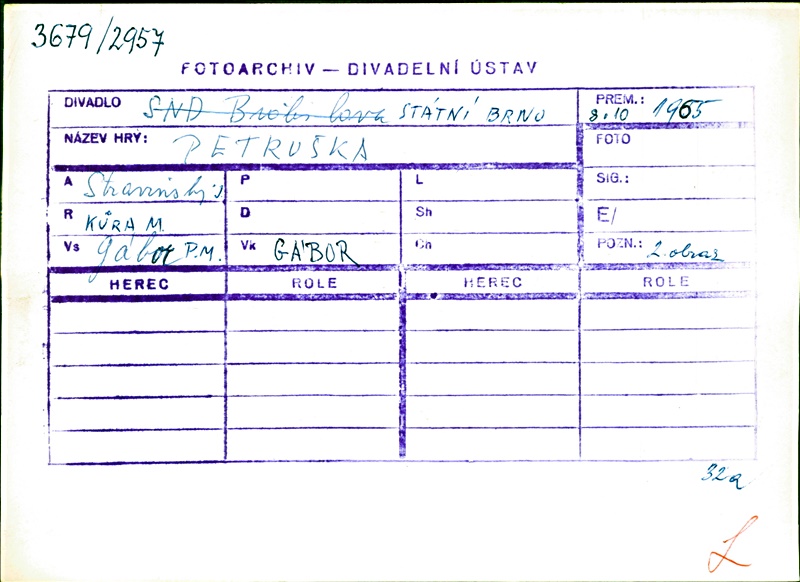 3679/2957
FOTOARCHIV — DIVADELNÍ ÚSTAV
DIVADLO SND Bratislava STÁTNÍ BRNO PREM.: 8.10 1965
NÁZEV HRY: PETRUŠKA FOTO
A Stravinskij P L SIG.:
R KŮRA M. D Sh E/
Vs Gábor P.M. Vk GÁBOR Ch POZN.: 2. obraz
HEREC ROLE HEREC ROLE
32a
L